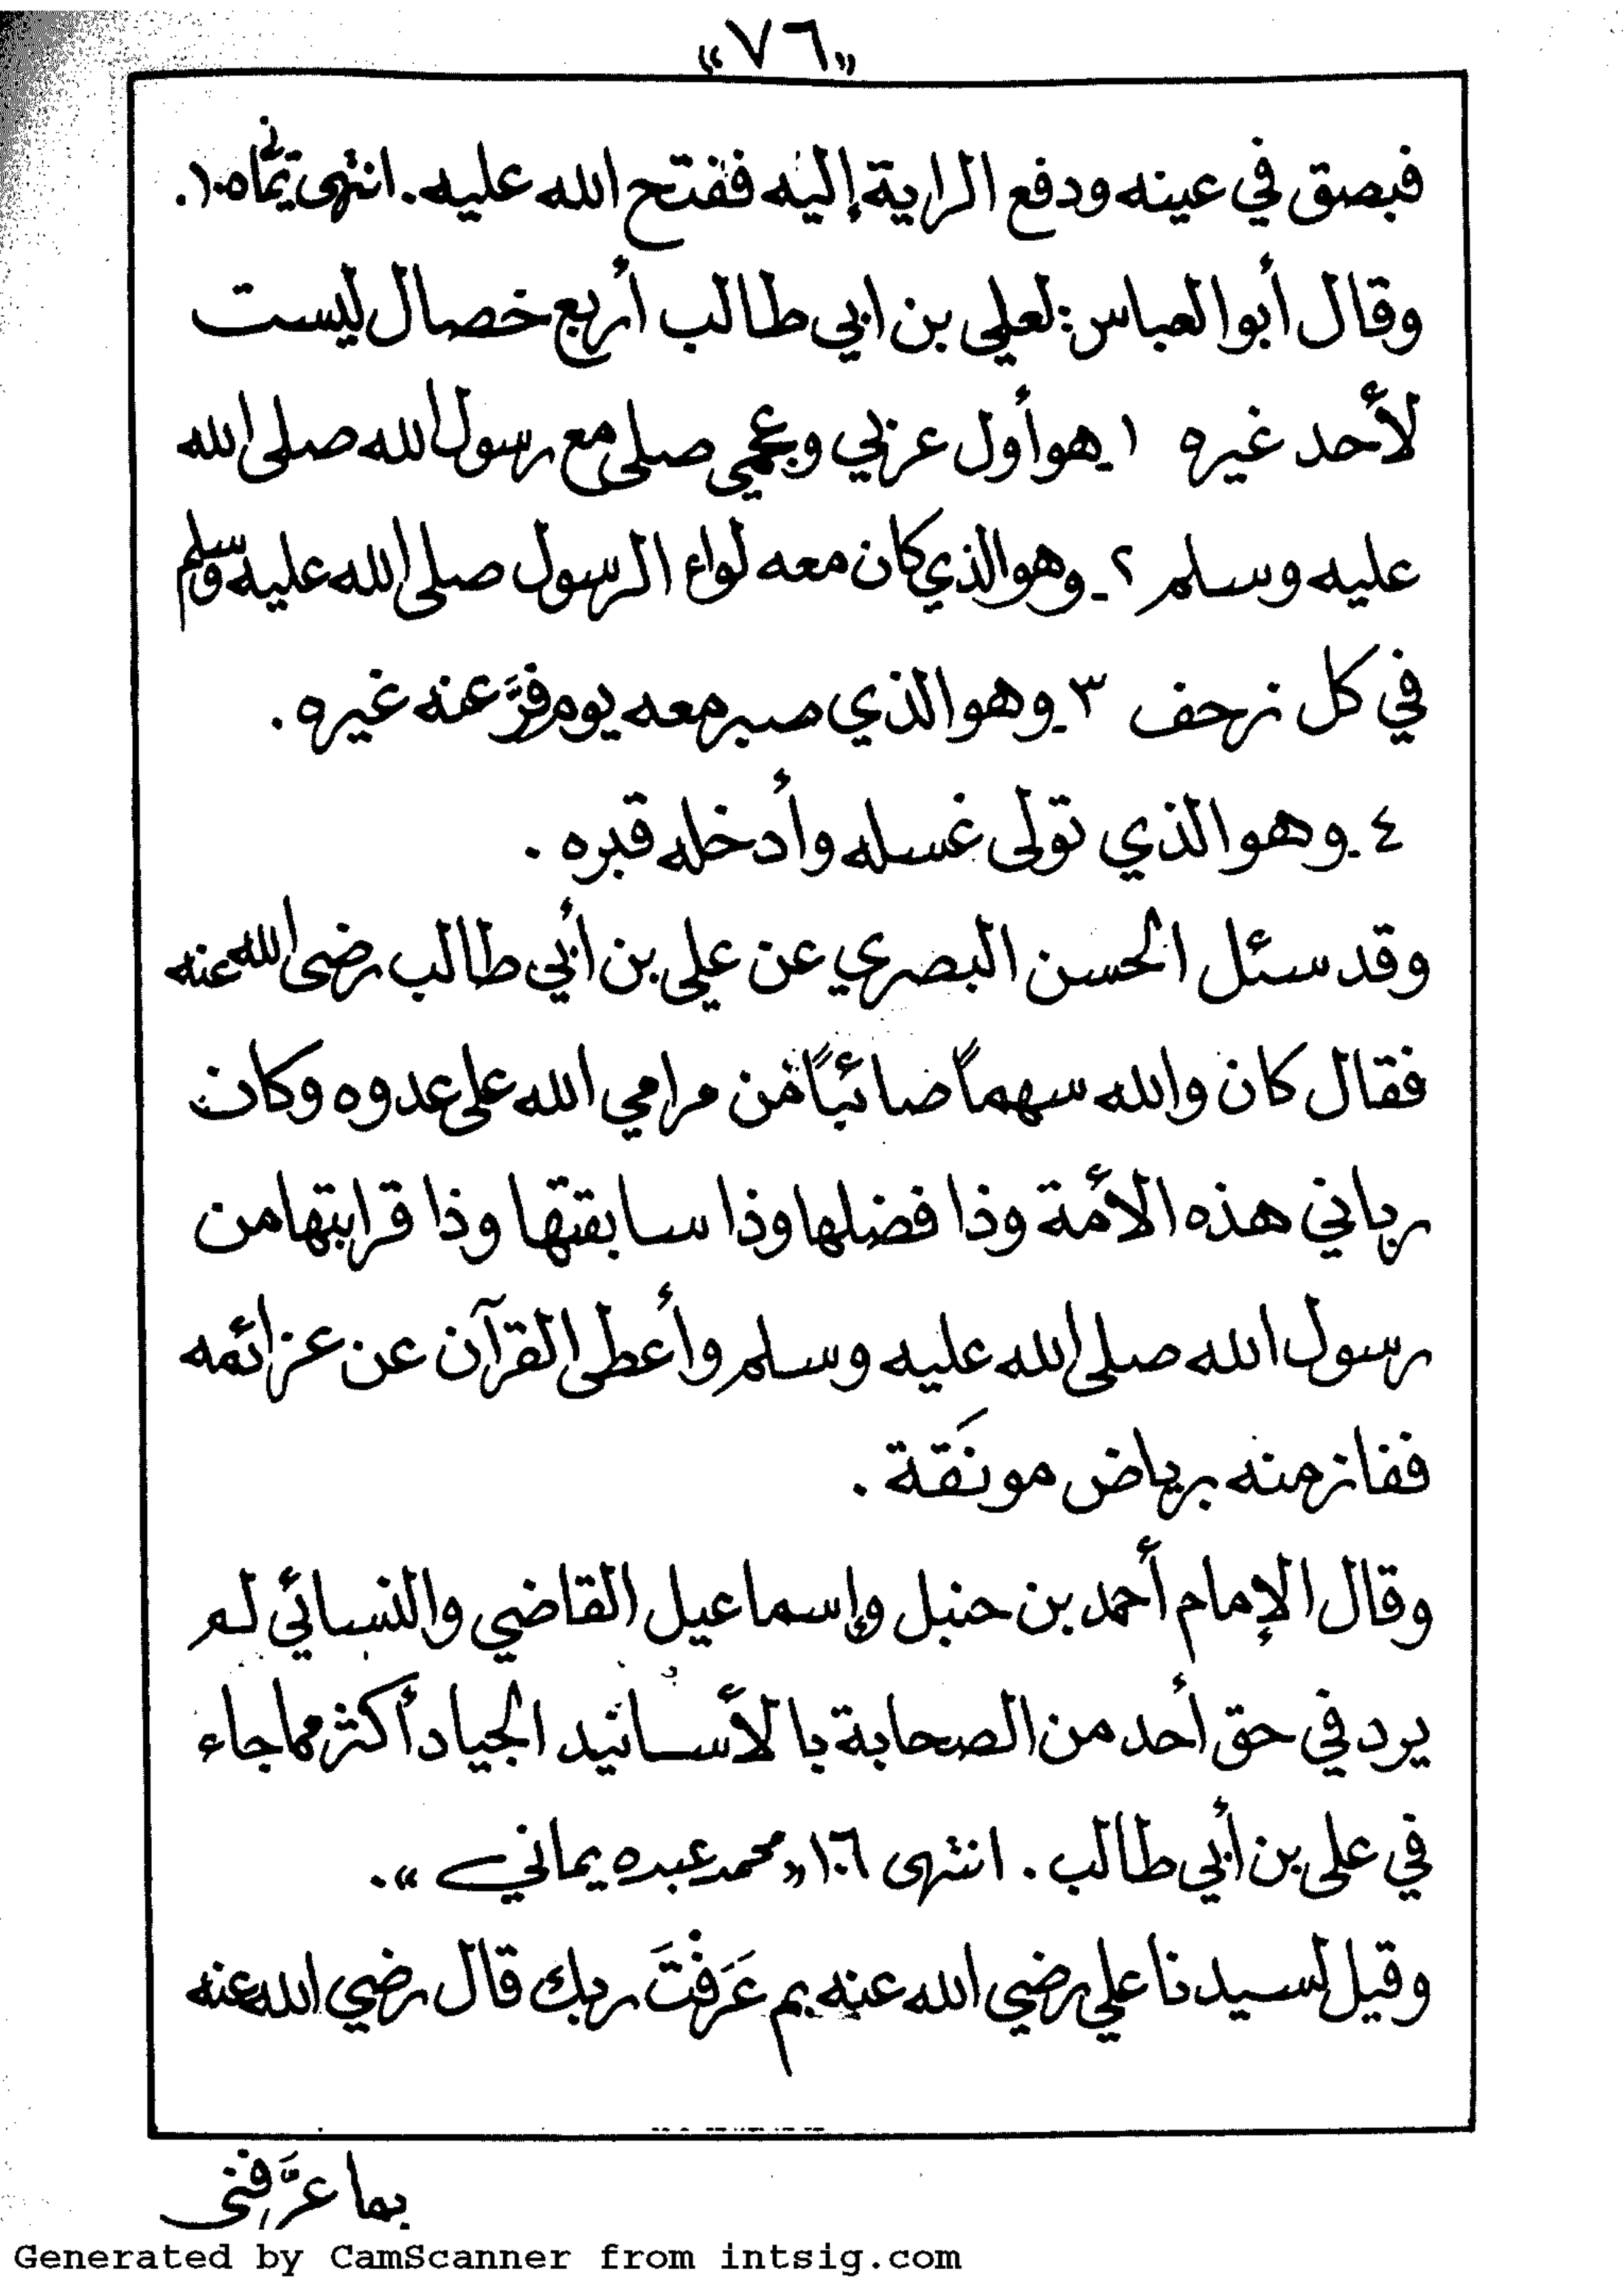 «٧٦»
فبصق في عينه ودفع الراية إليه ففتح الله عليه. انتهى يماني ١٠٥.
وقال أبو العباس: لعلي بن ابي طالب أربع خصال ليست
لأحد غيره ١ـ هو أول عربي وعجمي صلى مع رسول الله صلى الله
عليه وسلم ٢ـ وهو الذي كان معه لواء الرسول صلى الله عليه وسلم
في كل زحف ٣ـ وهو الذي صبر معه يوم فرَّ عنه غيره.
٤ـ وهو الذي تولى غسله وأدخله قبره.
وقد سئل الحسن البصري عن علي بن أبي طالب رضى الله عنه
فقال كان والله سهماً صائباً من مرامي الله على عدوه وكان
رباني هذه الأمة وذا فضلها وذا سابقتها وذا قرابتها من
رسول الله صلى الله عليه وسلم وأعطى القرآن عن عزائمه
ففاز منه برياض مونَقة.
وقال الإمام أحمد بن حنبل وإسماعيل القاضي والنسائي لم
يرد في حق أحد من الصحابة بالأسانيد الجياد أكثر مما جاء
في علي بن أبي طالب. انتهى ١٠٦ «محمد عبده يماني».
وقيل لسيدنا علي رضي الله عنه بم عَرَفْتَ ربك قال رضي الله عنه
بما عرَّفنى
Generated by CamScanner from intsig.com